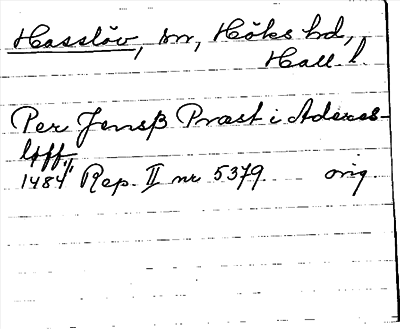 Hasslöv, sn, Höks hd,
Hall. l.
Per Jensß Præst i Aderss-
löff"
1484 Rep. II nr 5379. orig.